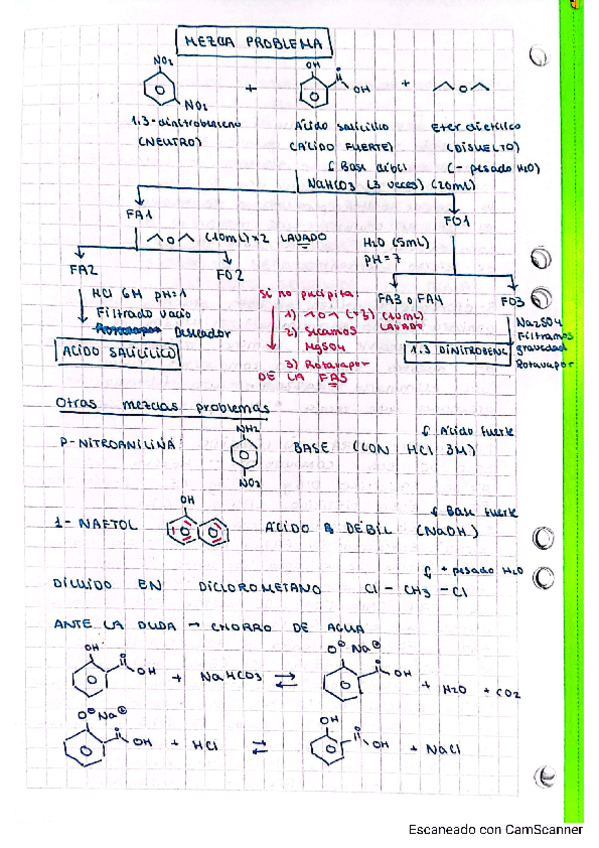 MEZCLA PROBLEMA
NO2
NO2
+
OH
OH
+
O
1,3-dinitrobenceno
(NEUTRO)
Ácido salicílico
(ÁCIDO FUERTE)
Base débil
Eter dietílico
(DISUELTO)
(- pesado H2O)
NaHCO3 (3 veces) (20mL)
FA1
FO1
O (10mL)x2 LAVADO
H2O (5mL)
pH=7
FA2
FO2
FA3 o FA4
FO3
HCl 6M pH=1
Filtrado vacío
Rotavapor Desecador
ACIDO SALICÍLICO
Si no precipita:
1) O (x3) (10mL)
LAVADO
2) Secamos
MgSO4
3) Rotavapor
DE LA FA5
Na2SO4
Filtramos
gravedad
Rotavapor
1.3 DINITROBENC
Otras mezclas problemas
P-NITROANILINA
NH2
NO2
BASE (CON HCl 3M)
Ácido fuerte
1-NAFTOL
OH
ÁCIDO DÉBIL (NaOH)
Base fuerte
DILUIDO EN DICLOROMETANO Cl - CH3 - Cl
+ pesado H2O
ANTE LA DUDA → CHORRO DE AGUA
OH
O
OH + NaHCO3 ⇌
O⊖ Na⊕
O
OH + H2O + CO2
O⊖ Na⊕
O
OH + HCl ⇌
OH
O
OH + NaCl
Escaneado con CamScanner